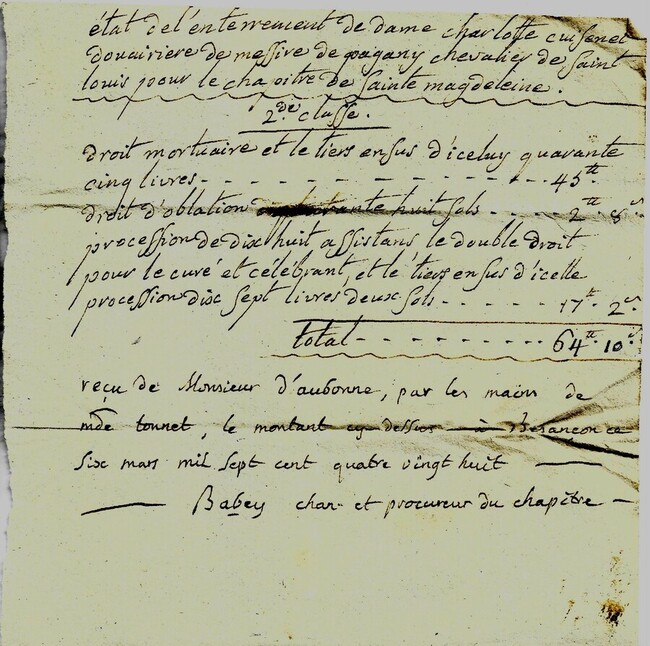 état de l'enterrement de dame charlotte cuisenet
douairiere de messire de pagany chevalier de Saint
louis pour le chapitre de Sainte magdeleine.
2de. classe.
droit mortuaire et le tiers en sus d'iceluy quarante
cinq livres - - - - - - - - - - - - - - 45tt.
droit d'oblation quarante huit sols - - - - 2tt. 8s
procession de dix huit assistans le double droit
pour le curé et célébrant, et le tiers en sus d'icelle
procession dix sept livres deux sols - - - - - - 17tt. 2s
total - - - - - - - - - 64tt. 10s
reçu de Monsieur d'aubonne, par les mains de
mde tonnet, le montant cy dessus - à Besançon ce
six mars mil sept cent quatre vingt huit —
— Babey chan- et procureur du chapître —